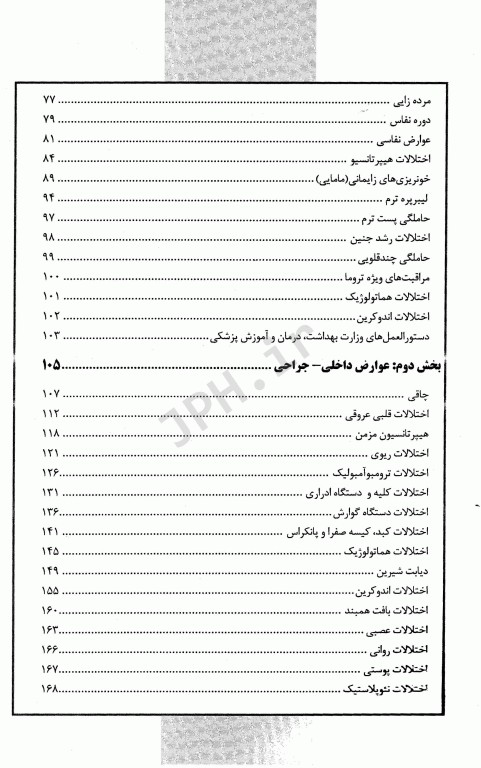 مرده زایی ........ ۷۷
دوره نفاس ........ ۷۹
عوارض نفاسی ........ ۸۱
اختلالات هیپرتانسیو ........ ۸۴
خونریزی‌های زایمانی(مامایی) ........ ۸۹
لیبرپره ترم ........ ۹۴
حاملگی پست ترم ........ ۹۷
اختلالات رشد جنین ........ ۹۸
حاملگی چندقلویی ........ ۹۹
مراقبت‌های ویژه تروما ........ ۱۰۰
اختلالات هماتولوژیک ........ ۱۰۱
اختلالات اندوکرین ........ ۱۰۲
دستورالعمل‌های وزارت بهداشت، درمان و آموزش پزشکی ........ ۱۰۳
بخش دوم: عوارض داخلی– جراحی ........ ۱۰۵
چاقی ........ ۱۰۷
اختلالات قلبی عروقی ........ ۱۱۲
هیپرتانسیون مزمن ........ ۱۱۸
اختلالات ریوی ........ ۱۲۱
اختلالات ترومبوآمبولیک ........ ۱۲۶
اختلالات کلیه و دستگاه ادراری ........ ۱۳۱
اختلالات دستگاه گوارش ........ ۱۳۶
اختلالات کبد، کیسه صفرا و پانکراس ........ ۱۴۱
اختلالات هماتولوژیک ........ ۱۴۵
دیابت شیرین ........ ۱۴۹
اختلالات اندوکرین ........ ۱۵۵
اختلالات بافت همبند ........ ۱۶۰
اختلالات عصبی ........ ۱۶۳
اختلالات روانی ........ ۱۶۶
اختلالات پوستی ........ ۱۶۷
اختلالات نئوپلاستیک ........ ۱۶۸
JPH.ir